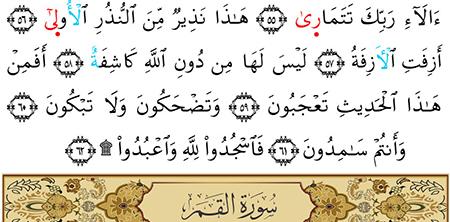 ءَالَآءِ رَبِّكَ تَتَمَارَىٰ ﴿٥٥﴾ هَـٰذَا نَذِيرٌ مِّنَ ٱلنُّذُرِ ٱلْأُولَىٰٓ ﴿٥٦﴾
أَزِفَتِ ٱلْـَٔازِفَةُ ﴿٥٧﴾ لَيْسَ لَهَا مِن دُونِ ٱللَّهِ كَاشِفَةٌ ﴿٥٨﴾ أَفَمِنْ
هَـٰذَا ٱلْحَدِيثِ تَعْجَبُونَ ﴿٥٩﴾ وَتَضْحَكُونَ وَلَا تَبْكُونَ ﴿٦٠﴾
وَأَنتُمْ سَـٰمِدُونَ ﴿٦١﴾ فَٱسْجُدُوا۟ لِلَّهِ وَٱعْبُدُوا۟ ۩ ﴿٦٢﴾
سُورَةُ القَمَرِ